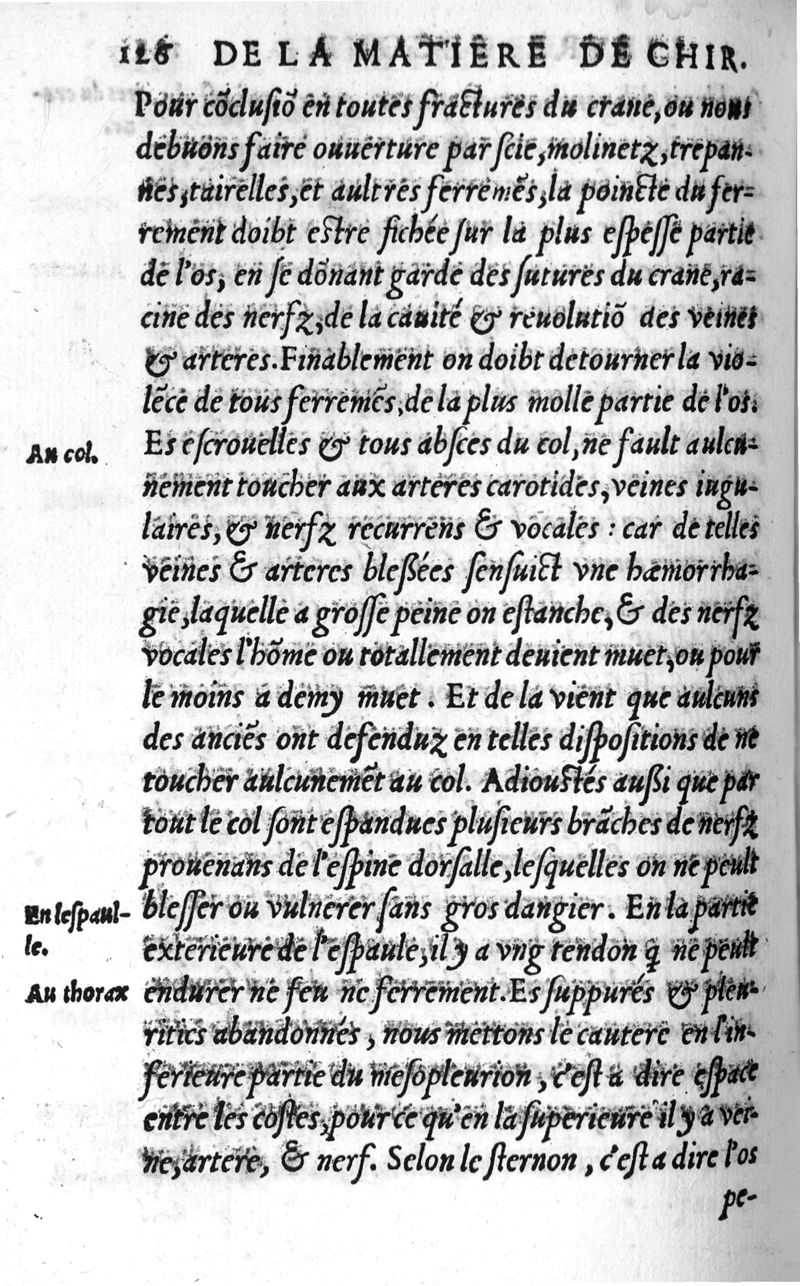 126 DE LA MATIERE DE CHIR.
Pour cōclusiō en toutes fractures du crane, ou nous
debuons faire ouuerture par scie, molinetz, trepan-
nes, tairelles, et aultres ferremēs, la poincte du fer-
rement doibt estre fichée sur la plus espesse partie
de l'os, en se dōnant garde des sutures du crane, ra-
cine des nerfz, de la cauité & reuolutiō des veines
& arteres. Finablement on doibt detourner la vio-
lēce de tous ferremēs, de la plus molle partie de l'os.
Au col.
Es escrouelles & tous absces du col, ne fault aulcu-
nement toucher aux arteres carotides, veines iugu-
laires, & nerfz recurrens & vocales : car de telles
veines & arteres blessées sensuict vne hæmorrha-
gie, laquelle a grosse peine on estanche, & des nerfz
vocales l'hōme ou totallement deuient muet, ou pour
le moins a demy muet. Et de la vient que aulcuns
des anciēs ont defenduz en telles dispositions de ne
toucher aulcunemēt au col. Adioustés aussi que par
tout le col sont espandues plusieurs brāches de nerfz
prouenans de l'espine dorsalle, lesquelles on ne peult
En lespaul-
le.
blesser ou vulnerer sans gros dangier. En la partie
exterieure de l'espaule, il y a vng tendon q̄ ne peult
Au thorax
endurer ne feu ne ferrement. Es suppurés & pleu-
ritics abandonnés, nous mettons le cautere en l'in-
ferieure partie du mesopleurion, c'est a dire espace
entre les costes, pour ce qu'en la superieure il y a vei-
ne, artere, & nerf. Selon le sternon, c'est a dire l'os
pe-